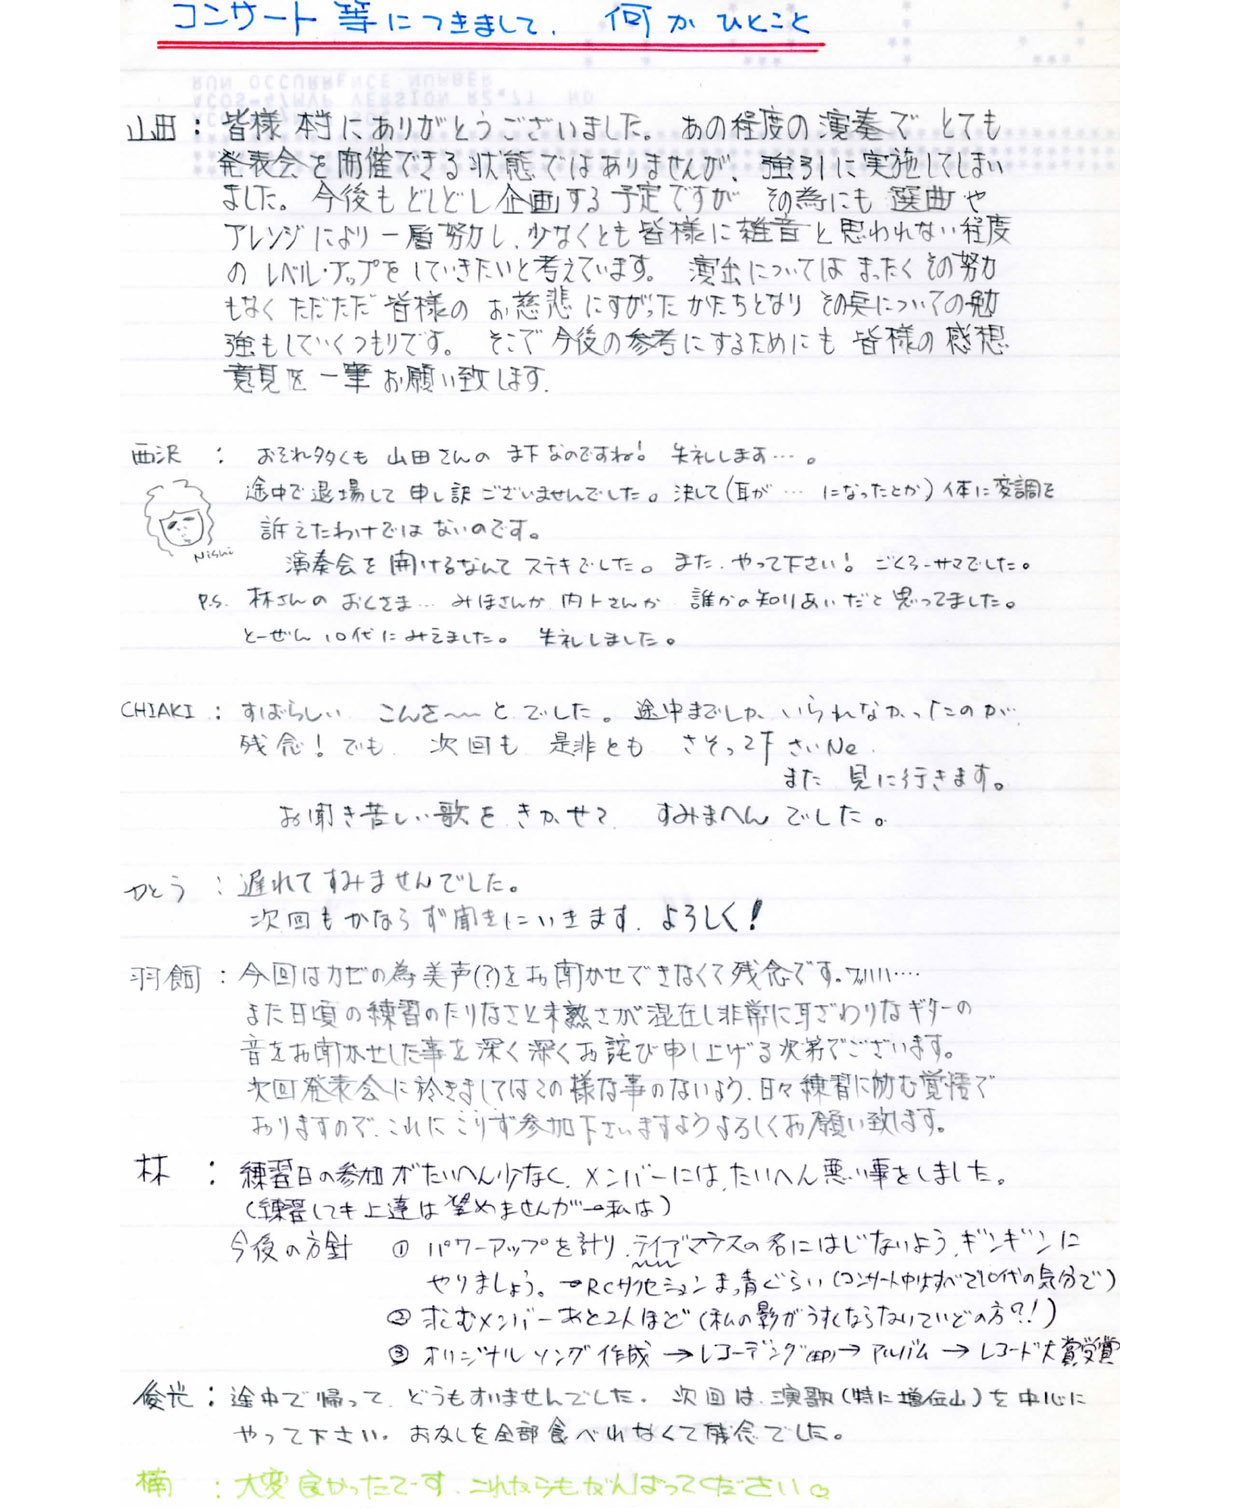 コンサート等につきまして、何かひとこと
RUN OCCURRENCE NUMBER
ACOS-4/MVP VERSION R2.71
山田：皆様 本当にありがとうございました。あの程度の演奏で とても
発表会を開催できる状態ではありませんが、強引に実施してしまい
ました。今後もどしどし企画する予定ですが その為にも 選曲や
アレンジにより一層努力し、少なくとも皆様に雑音と思われない程度
の レベル・アップをしていきたいと考えています。 演出については まったくその努力
もなく ただただ 皆様の お慈悲にすがった かたちとなり その点についての勉
強もしていくつもりです。 そこで今後の参考にするためにも 皆様の感想
意見を一筆お願い致します。
西沢：おそれ多くも 山田さんの ま下なのですね！ 失礼します…。
途中で退場して 申し訳ございませんでした。決して(耳が … になったとか) 体に変調を
訴えたわけではないのです。
Nishi
演奏会を開けるなんて ステキでした。また、やって下さい！ ごくろーサマでした。
P.S. 林さんの おくさま… みほさんか 内トさんか 誰かの知りあいだと思ってました。
とーぜん 10代にみえました。 失礼しました。
CHIAKI：すばらしい こんさ〜〜とでした。途中までしか、いられなかったのが、
残念！でも、次回も 是非とも さそって下さいNe.
また 見に行きます。
お聞き苦しい歌を きかせて すみまへん でした。
かとう：遅れてすみませんでした。
次回もかならず聞きにいきます。よろしく！
羽飼：今回はカゼの為美声(?)をお聞かせできなくて残念です。ワハハハ‥‥
また日頃の練習のたりなさと未熟さが混在し非常に耳ざわりなギターの
音をお聞かせした事を深く深くお詫び申し上げる次第でございます。
次回発表会に於きましてはこの様な事のないよう、日々練習に励む覚悟で
おりますので、これにこりず参加下さいますようよろしくお願い致します。
林：練習日の参加がたいへん少なく、メンバーには、たいへん悪い事をしました。
(練習しても上達は望めませんが→私は)
今後の方針 ① パワーアップを計り、ライブマウスの名にはじないよう、ギンギンに
やりましょう。→RCサクセションまっ青ぐらい(コンサート中はすべて10代の気分で)
② 求むメンバー あと2人ほど(私の影がうすくならないていどの方?!)
③ オリジナルソング作成 → レコーデング(EP) → アルバム → レコード大賞受賞
俊光：途中で帰って、どうもすいませんでした。次回は、演歌(特に増位山)を中心に
やって下さい。おなしを全部食べれなくて残念でした。
楠：大変良かったでーす。これからもがんばってください♡